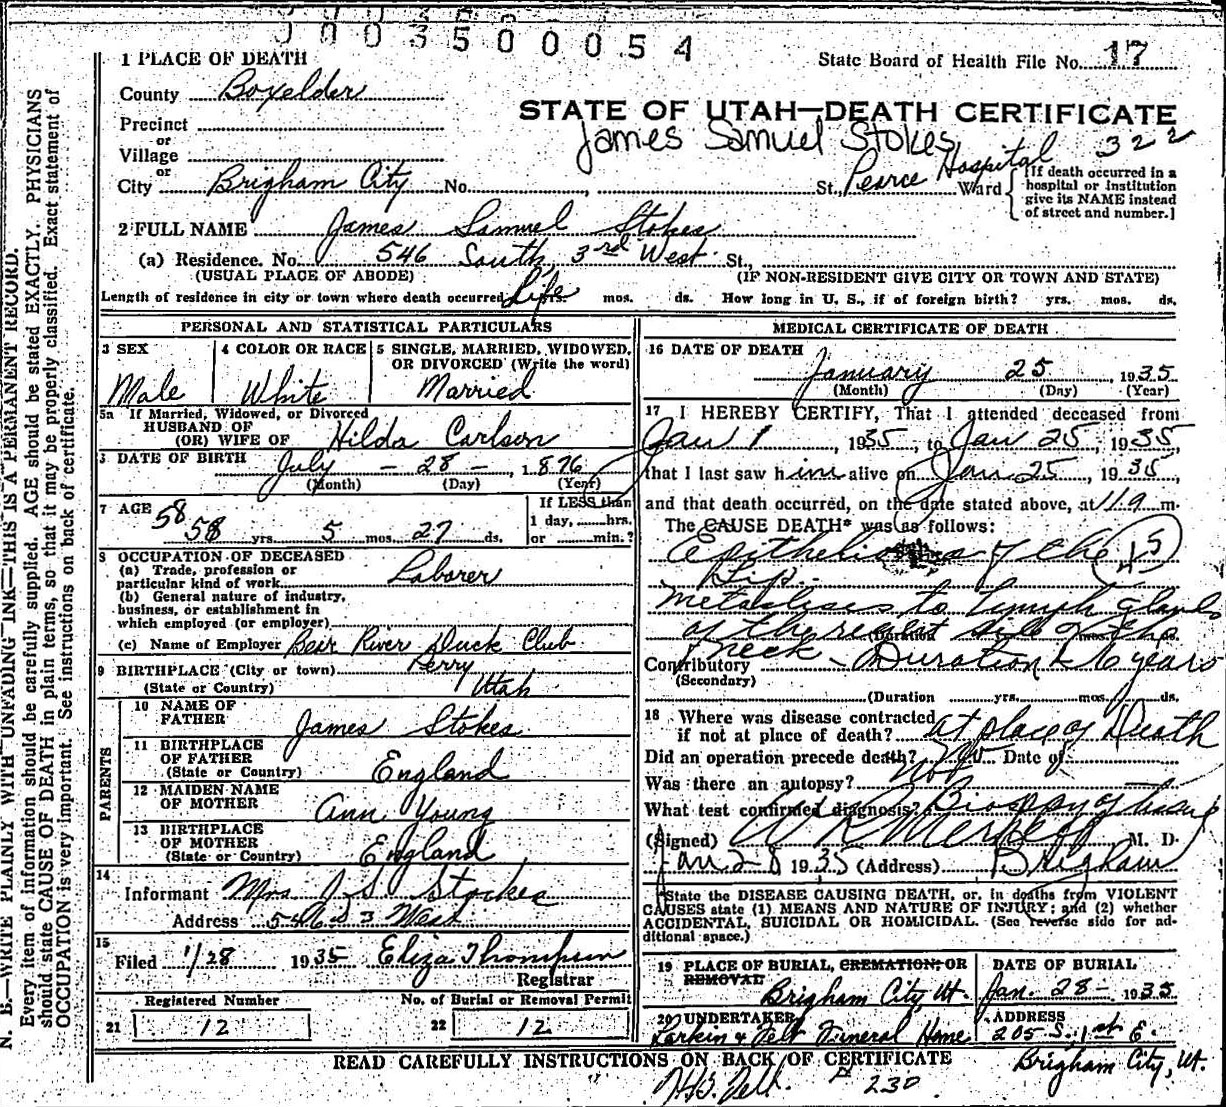 0035000054
1 PLACE OF DEATH
State Board of Health File No. 17
County Boxelder
STATE OF UTAH—DEATH CERTIFICATE
Precinct
James Samuel Stokes 322
or
Village
or
City Brigham City No. , St., Pearce Hospital Ward
[If death occurred in a
hospital or institution
give its NAME instead
of street and number.]
2 FULL NAME James Samuel Stokes
(a) Residence. No. 546 South 3rd West St.,
(USUAL PLACE OF ABODE) (IF NON-RESIDENT GIVE CITY OR TOWN AND STATE)
Length of residence in city or town where death occurred Life yrs. mos. ds. How long in U. S., if of foreign birth? yrs. mos. ds.
PERSONAL AND STATISTICAL PARTICULARS
3 SEX
Male
4 COLOR OR RACE
White
5 SINGLE, MARRIED, WIDOWED,
OR DIVORCED (Write the word)
Married
5a If Married, Widowed, or Divorced
HUSBAND OF
(OR) WIFE OF Hilda Carlson
DATE OF BIRTH
July - 28 - , 1876
(Month) (Day) (Year)
7 AGE 58
58 yrs. 5 mos. 27 ds.
If LESS than
1 day, hrs.
or min.?
8 OCCUPATION OF DECEASED
(a) Trade, profession or
particular kind of work Laborer
(b) General nature of industry,
business, or establishment in
which employed (or employer)
(c) Name of Employer Bear River Duck Club
9 BIRTHPLACE (City or town) Perry
(State or Country) Utah
PARENTS
10 NAME OF
FATHER James Stokes
11 BIRTHPLACE
OF FATHER
(State or Country) England
12 MAIDEN NAME
OF MOTHER Ann Young
13 BIRTHPLACE
OF MOTHER
(State or Country) England
14
Informant Mrs J. S. Stokes
Address 546 S 3 West
15
Filed 1/28 1935 Eliza Thompson
Registrar
Registered Number
21 12
No. of Burial or Removal Permit
22 12
MEDICAL CERTIFICATE OF DEATH
16 DATE OF DEATH
January 25, 1935
(Month) (Day) (Year)
17 I HEREBY CERTIFY, That I attended deceased from
Jan 1, 1935, to Jan 25, 1935
that I last saw him alive on Jan 25, 1935,
and that death occurred, on the date stated above, at 119 m.
The CAUSE DEATH* was as follows:
Epithelioma of the 45
Lip.
Metastises to lymph glands
of the right side of the
(Duration mos. ds.
neck - Duration 6 years
Contributory
(Secondary)
(Duration yrs. mos. ds.
18 Where was disease contracted
if not at place of death? at place of Death
Did an operation precede death? No Date of
Was there an autopsy? No
What test confirmed diagnosis? Biospy of
(Signed) M. D.
Jan 28 1935 (Address) Brigham
*State the DISEASE CAUSING DEATH, or, in deaths from VIOLENT
CAUSES state (1) MEANS AND NATURE OF INJURY; and (2) whether
ACCIDENTAL, SUICIDAL OR HOMICIDAL. (See reverse side for ad-
ditional space.)
19 PLACE OF BURIAL, CREMATION, OR
REMOVAL
Brigham City, Ut.
DATE OF BURIAL
Jan. 28- 1935
20 UNDERTAKER
Larkin & Felt Funeral Home
ADDRESS
205 S. 1st E.
Brigham City, Ut.
READ CAREFULLY INSTRUCTIONS ON BACK OF CERTIFICATE
Felt. 230
N. B.—WRITE PLAINLY WITH UNFADING INK—THIS IS A PERMANENT RECORD.
Every item of information should be carefully supplied. AGE should be stated EXACTLY. PHYSICIANS
should state CAUSE OF DEATH in plain terms, so that it may be properly classified. Exact statement of
OCCUPATION is very important. See instructions on back of certificate.